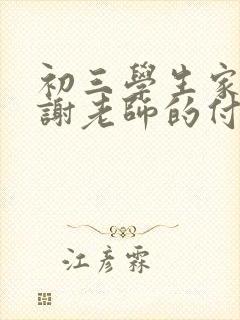 初三學生家
謝老師的付
江彦霖